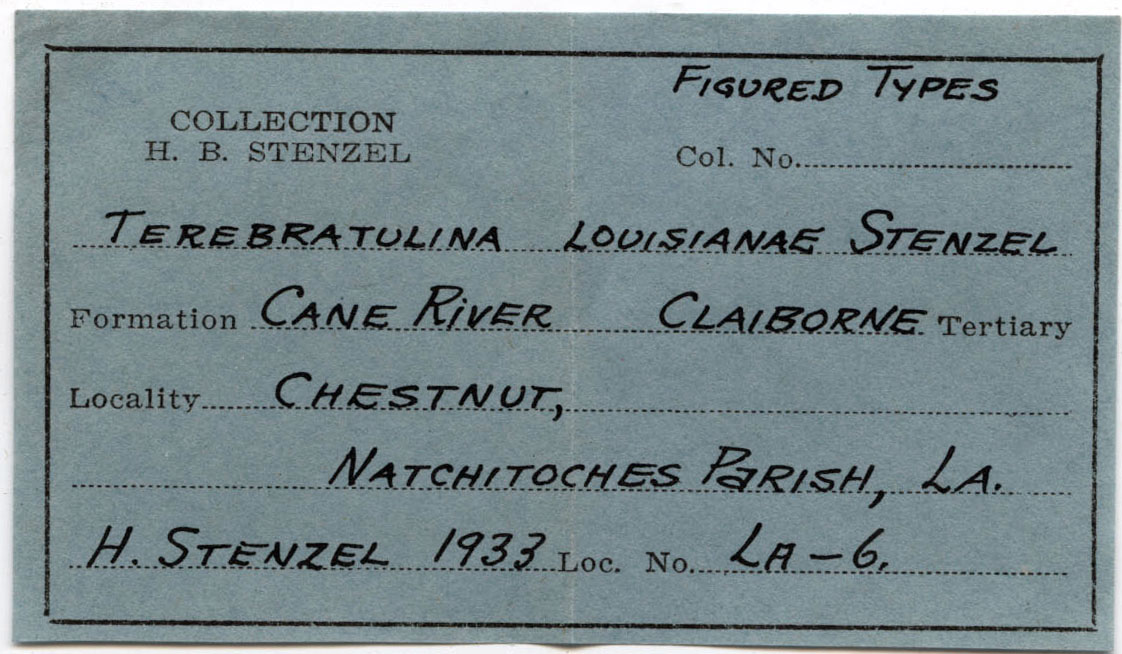 FIGURED TYPES
COLLECTION
H. B. STENZEL
Col. No.
TEREBRATULINA LOUISIANAE STENZEL
Formation CANE RIVER CLAIBORNE Tertiary
Locality CHESTNUT,
NATCHITOCHES PARISH, LA.
H. STENZEL 1933 Loc. No. LA-6.